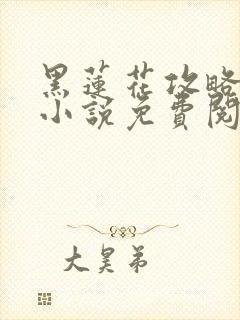 黑蓮花攻略
小說免費閱
大昊弟